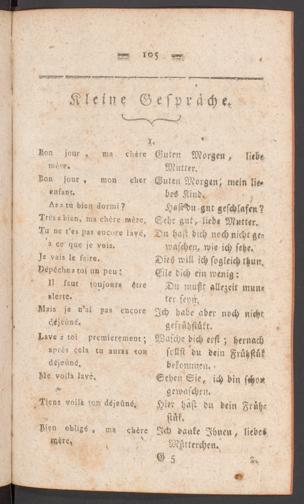 105
Kleine Gespräche.
1.
Bon jour, ma chère mère.
Guten Morgen, liebe Mutter.
Bon jour, mon cher enfant.
Guten Morgen, mein liebes Kind.
As-tu bien dormi?
Hast du gut geschlafen?
Très bien, ma chère mère.
Sehr gut, liebe Mutter.
Tu ne t'es pas encore lavé, à ce que je vois.
Du hast dich noch nicht gewaschen, wie ich sehe.
Je vais le faire.
Dies will ich sogleich thun.
Dépêches toi un peu:
Eile dich ein wenig:
Il faut toujours être alerte.
Du mußt allezeit munter seyn.
Mais je n'ai pas encore déjeûné.
Ich habe aber noch nicht gefrühstükt.
Lave-toi premierement; après cela tu auras ton déjeûné.
Wasche dich erst; hernach sollst du dein Frühstük bekommen.
Me voilà lavé.
Sehen Sie, ich bin schon gewaschen.
Tiens voilà ton déjeûné.
Hier hast du dein Frühstük.
Bien obligé, ma chère mère.
Ich danke Ihnen, liebes Mütterchen.
G 5
2.